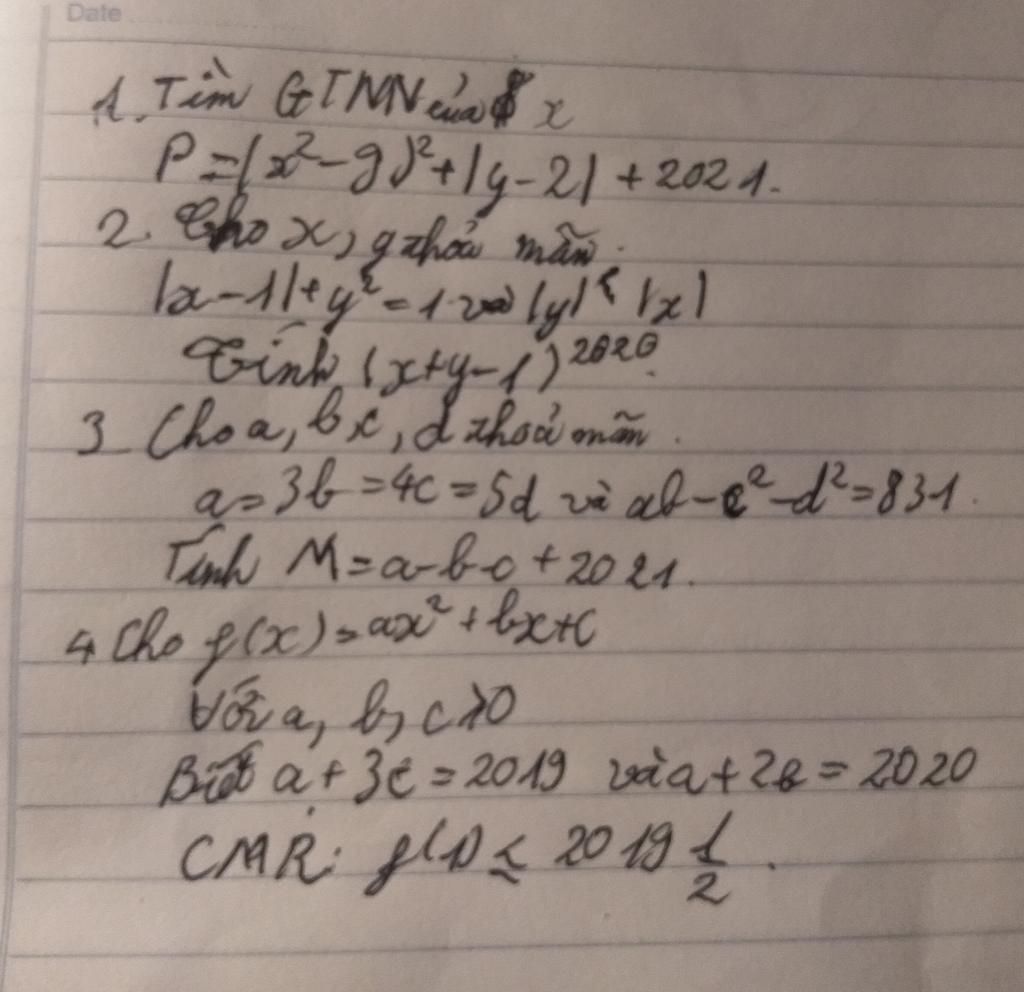 Date
1. Tìm GTNN của x
P = (x² - 9)² + |y - 2| + 2021.
2. Cho x, y thoả mãn.
|x - 1| + y² = 1 và |y| ≤ |x|
Tính (x+y-1)²⁰²⁰.
3 Cho a, b, c, d thoả mãn.
a = 3b = 4c = 5d và ab - c² - d² = 831.
Tính M = a - b - c + 2021.
4 Cho f(x) = ax² + bx + c
Với a, b, c ≥ 0
Biết a + 3c = 2019 và a + 2b = 2020
CMR: f(1) ≤ 2019 1/2.